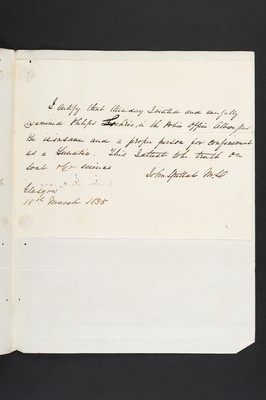 I certify that this day I visited and carefully
examined Philips in the Police Office
He is insane and a proper person for confinement
as a Lunatic. This I attest to be truth on
soul &c science
John Spittal M.D.
Glasgow
18th March 1835